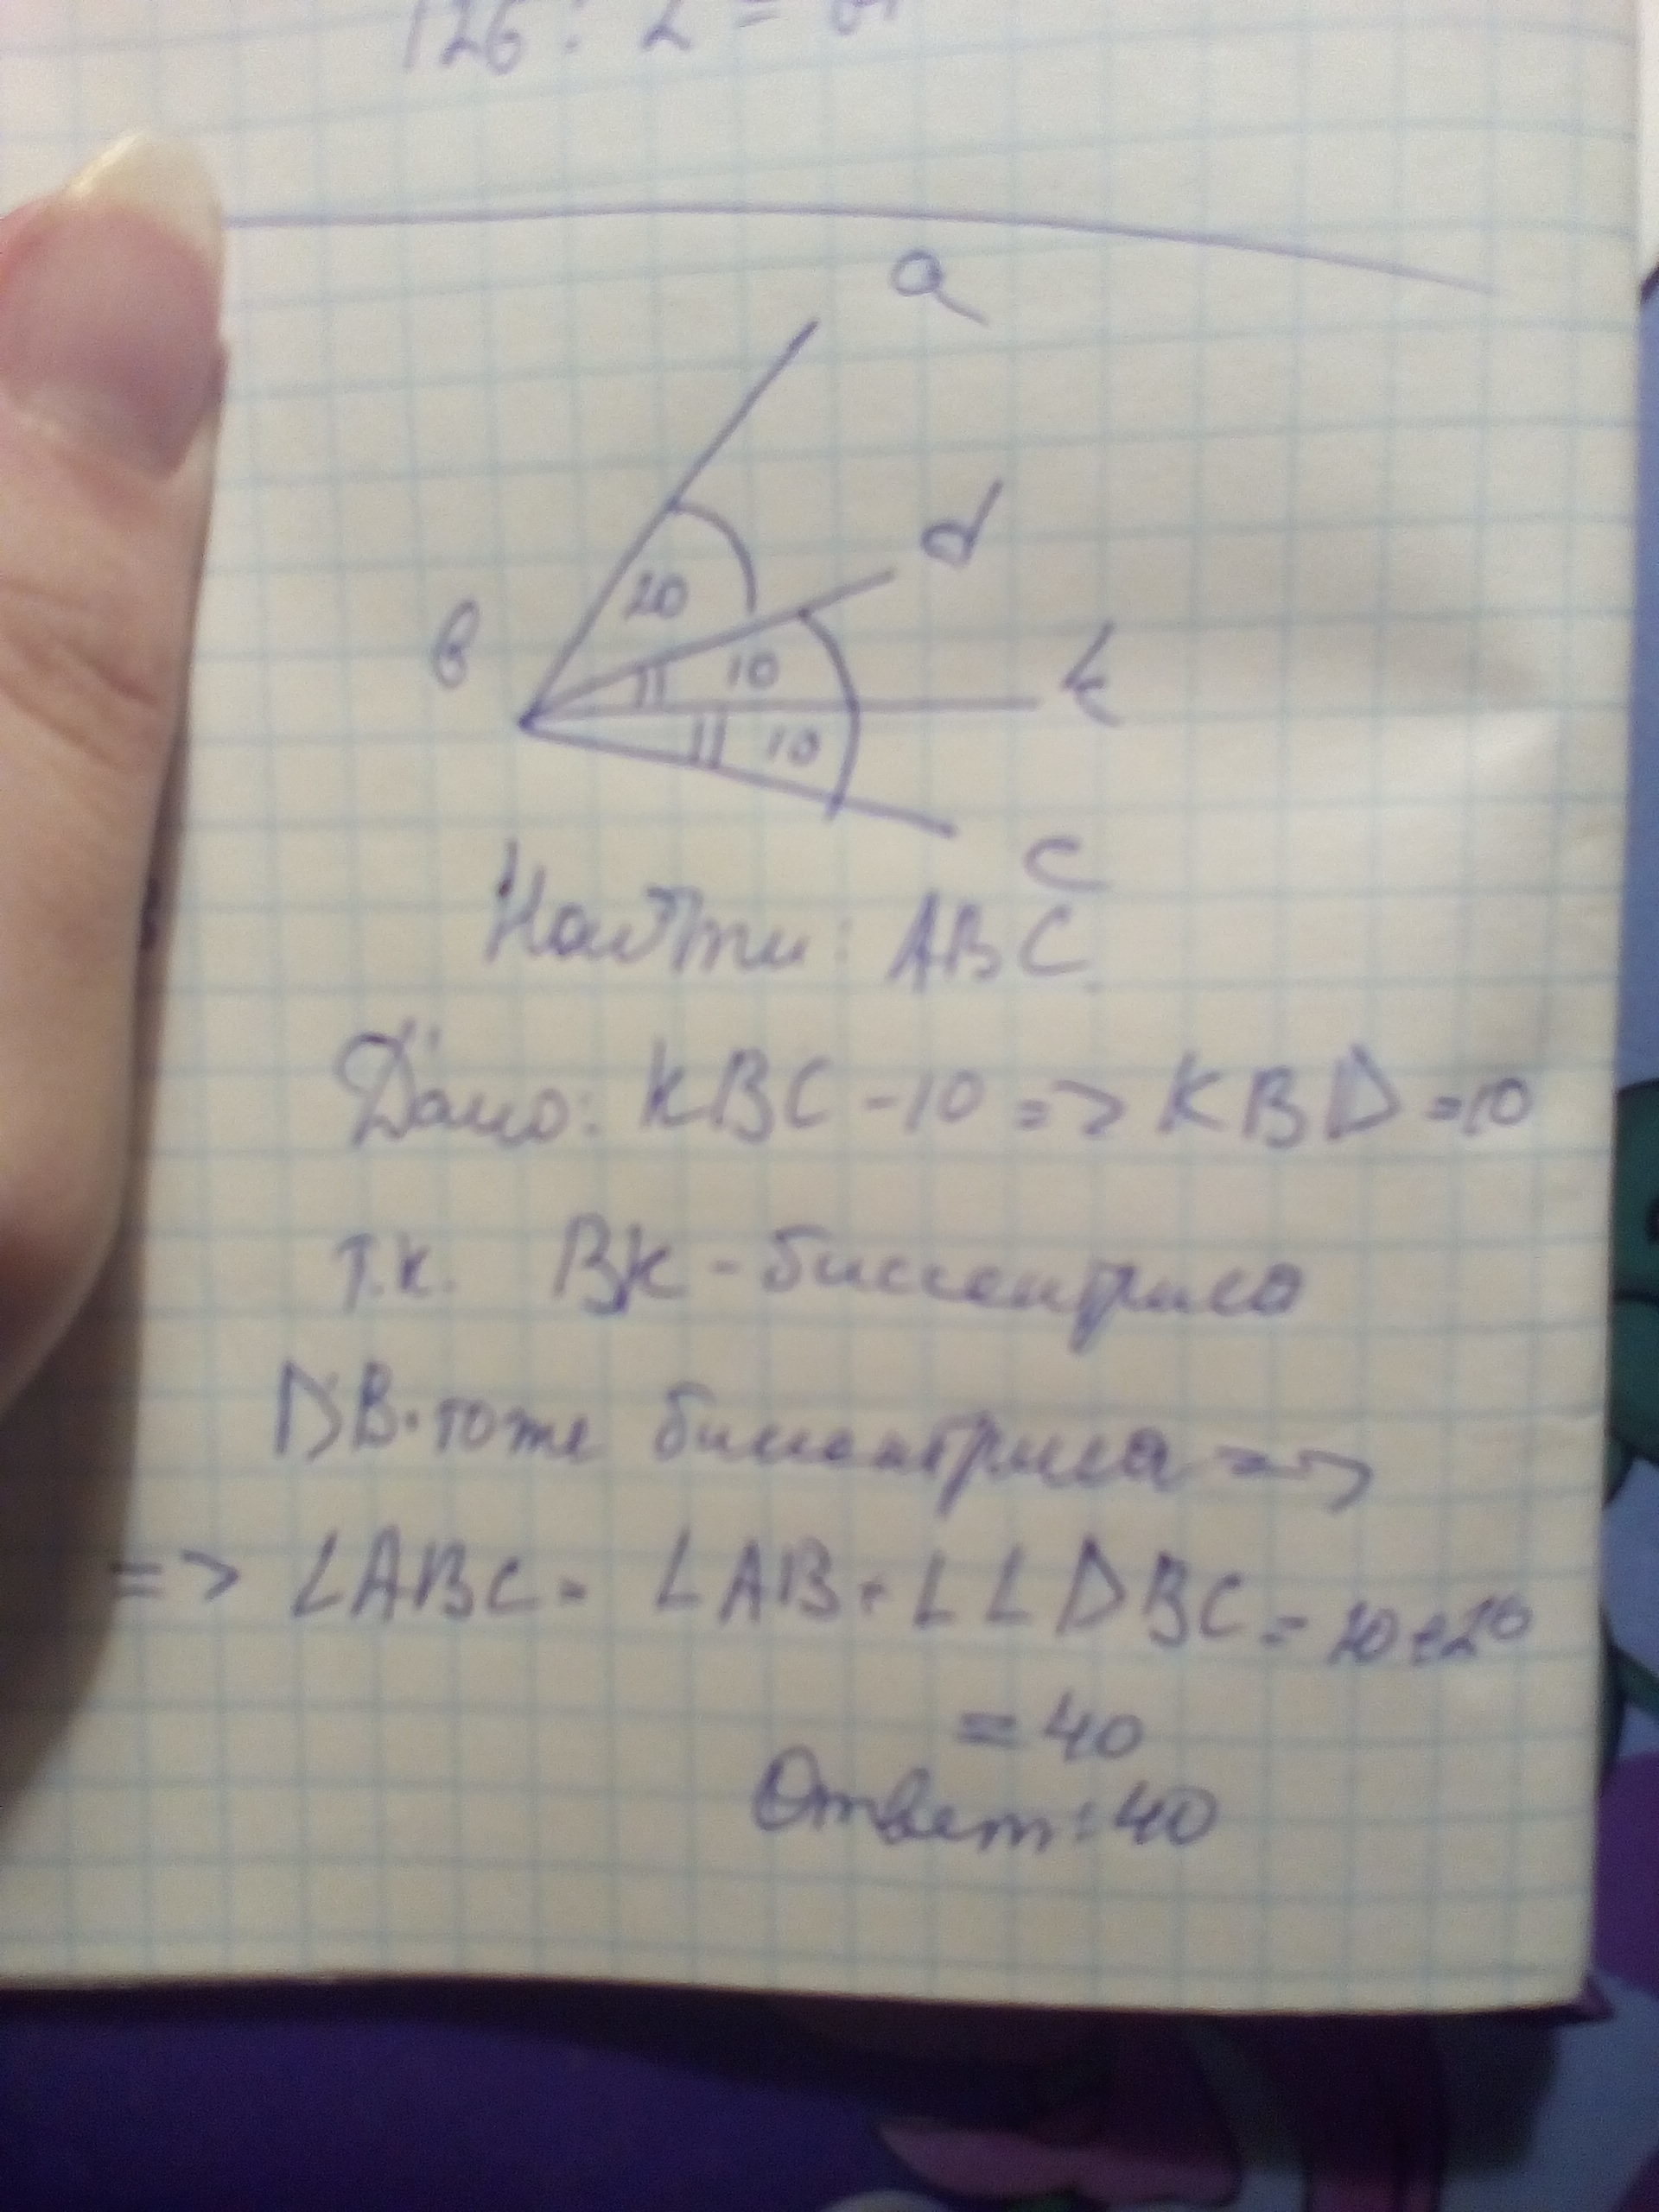 126 : 2 =
a
d
20
в
10
k
10
c
Найти: ABC
Дано: KBC - 10 => KBD = 10
т.к. BK - биссектриса
DB - тоже биссектриса =>
=> ∠ABC = ∠AB + ∠∠DBC = 20 + 20
= 40
Ответ: 40